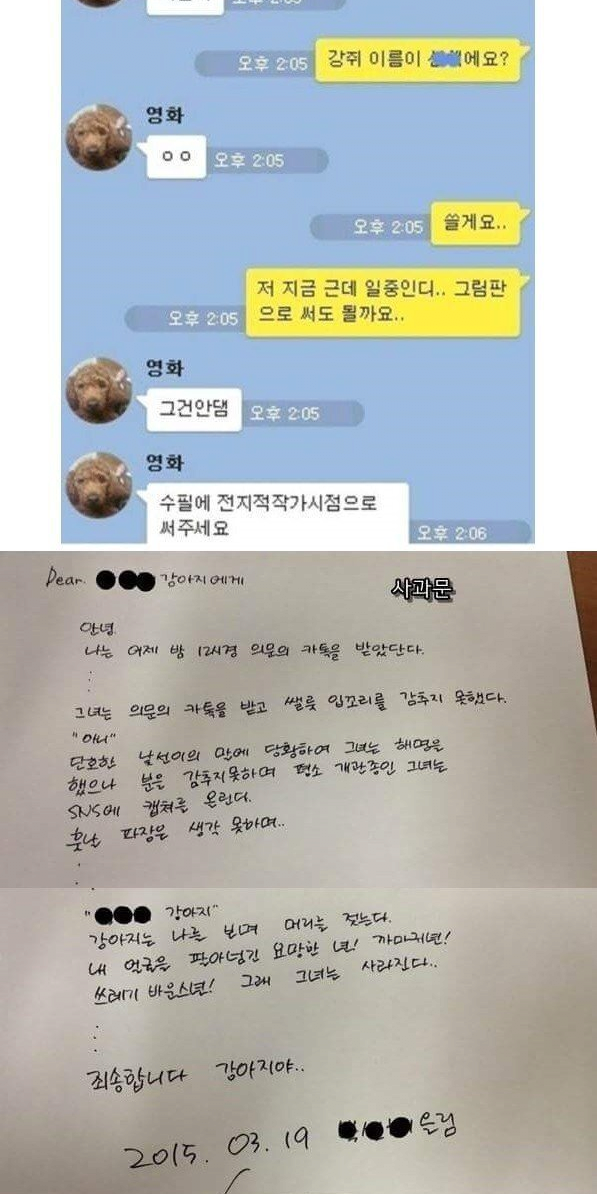 오후 2:05
강쥐 이름이 에요?
오후 2:05
영화
ㅇㅇ
오후 2:05
쓸게요..
오후 2:05
저 지금 근데 일중인디.. 그림판
으로 써도 될까요..
오후 2:05
영화
그건안댐
오후 2:05
영화
수필에 전지적작가시점으로
써주세요
오후 2:06
Dear. 강아지에게
사과문
안녕
나는 어제 밤 12시경 의문의 카톡을 받았단다.
:
:
그녀는 의문의 카톡을 받고 쌜룻 입꼬리를 감추지 못했다.
"아니"
단호한 낯선이의 말에 당황하여 그녀는 해명을
했으나 분을 감추지못하며 평소 개관종인 그녀는
SNS에 캡쳐를 올린다.
훗날 파장은 생각 못하며..
:
" 강아지"
강아지는 나를 보며 머리를 젓는다.
내 얼굴을 팔아넘긴 요망한 년! 까마귀년!
쓰레기 바운스년! 그래 그녀는 사라진다..
:
:
죄송합니다 강아지야..
2015. 03. 19 올림